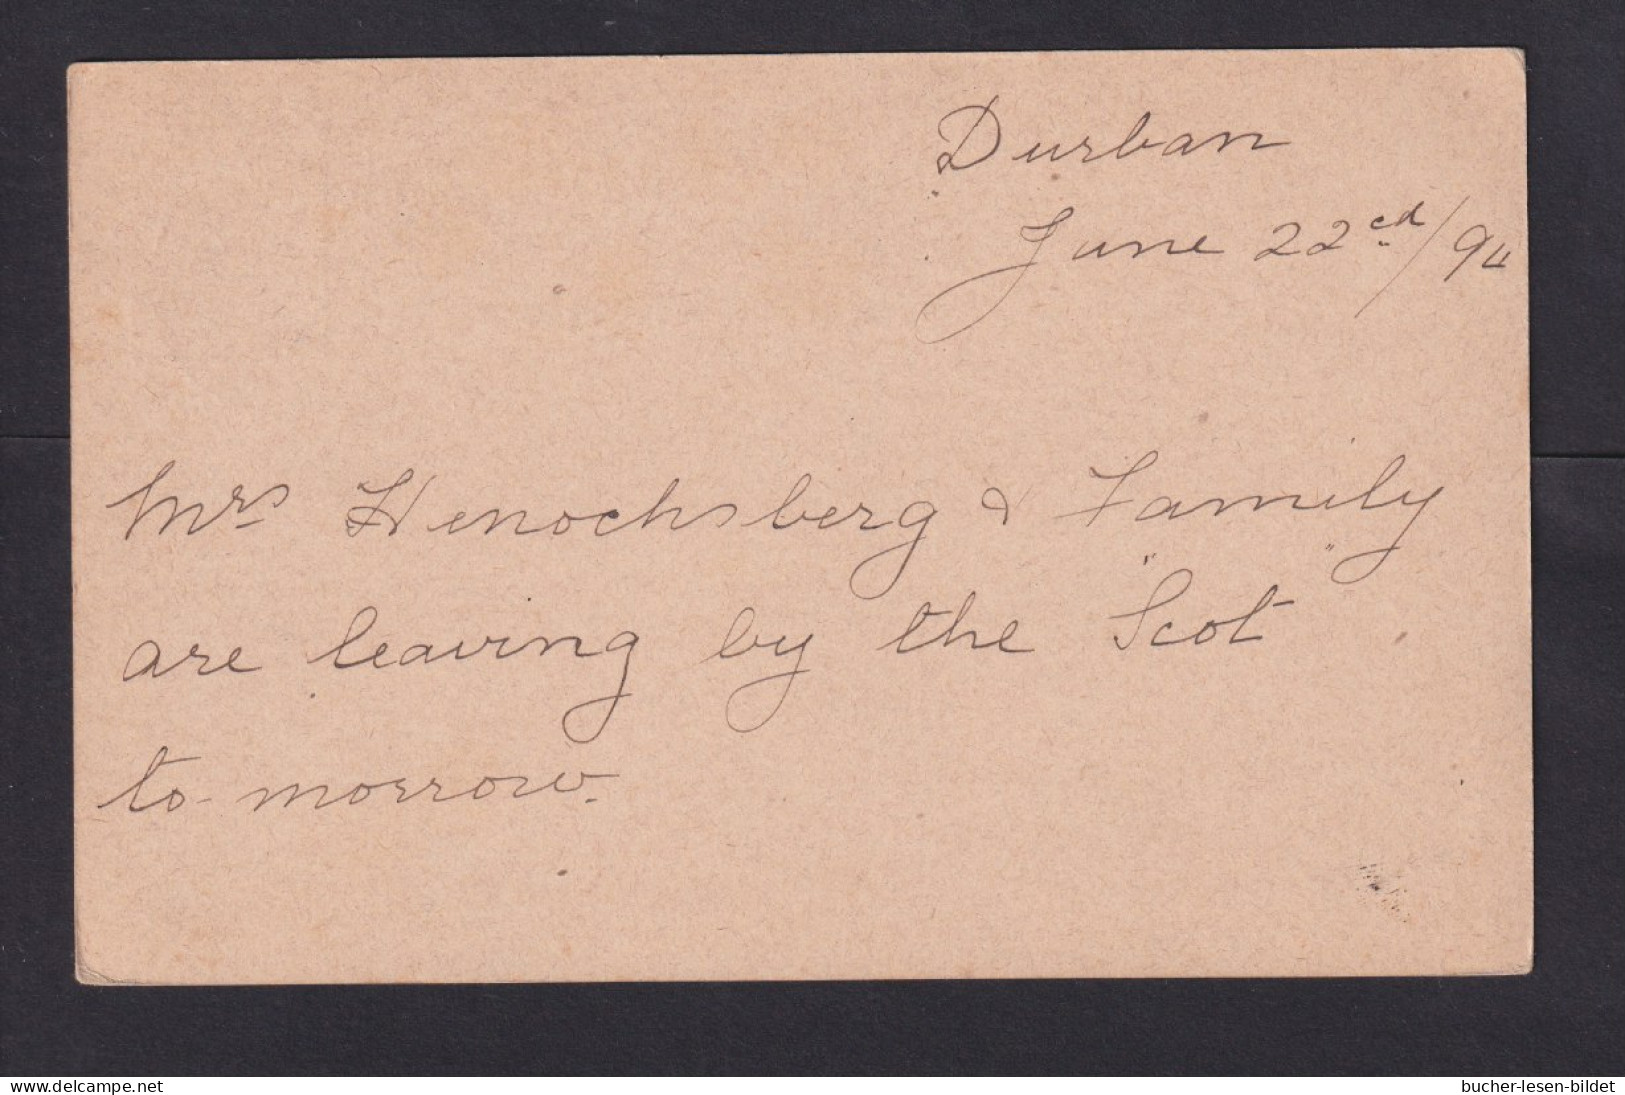 Durban
June 22nd/94
Mrs Henochsberg & Family
are leaving by the "Scot"
to-morrow.
www.delcampe.net
bucher-lesen-bildet